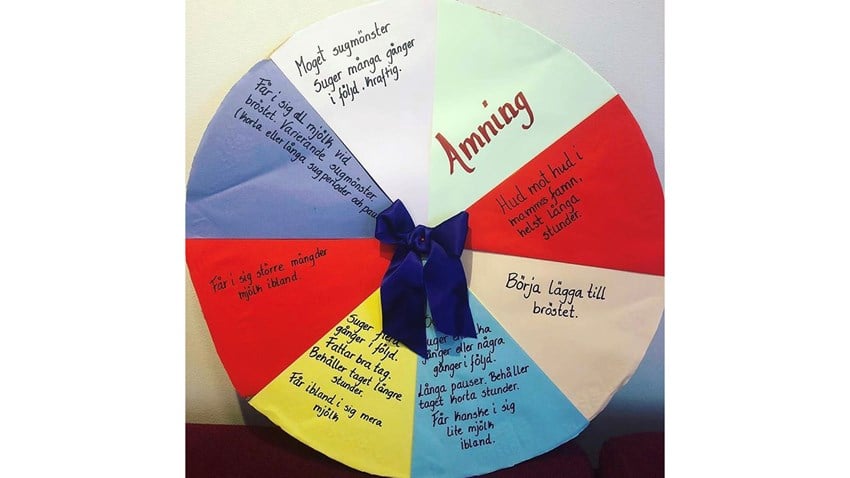 Amning
Hud mot hud i
mammas famn,
helst långa
stunder.
Börja lägga till
bröstet.
Suger
gånger eller några
gånger i följd.
Långa pauser. Behåller
taget korta stunder.
Får kanske i sig
lite mjölk
ibland.
Suger flera
gånger i följd.
Fattar bra tag.
Behåller taget längre
stunder.
Får ibland i sig mera
mjölk
Får i sig större mängder
mjölk ibland.
Får i sig all mjölk vid
bröstet. Varierande sugmönster.
(korta eller långa sugperioder och
Moget sugmönster
Suger många gånger
i följd. Kraftig.